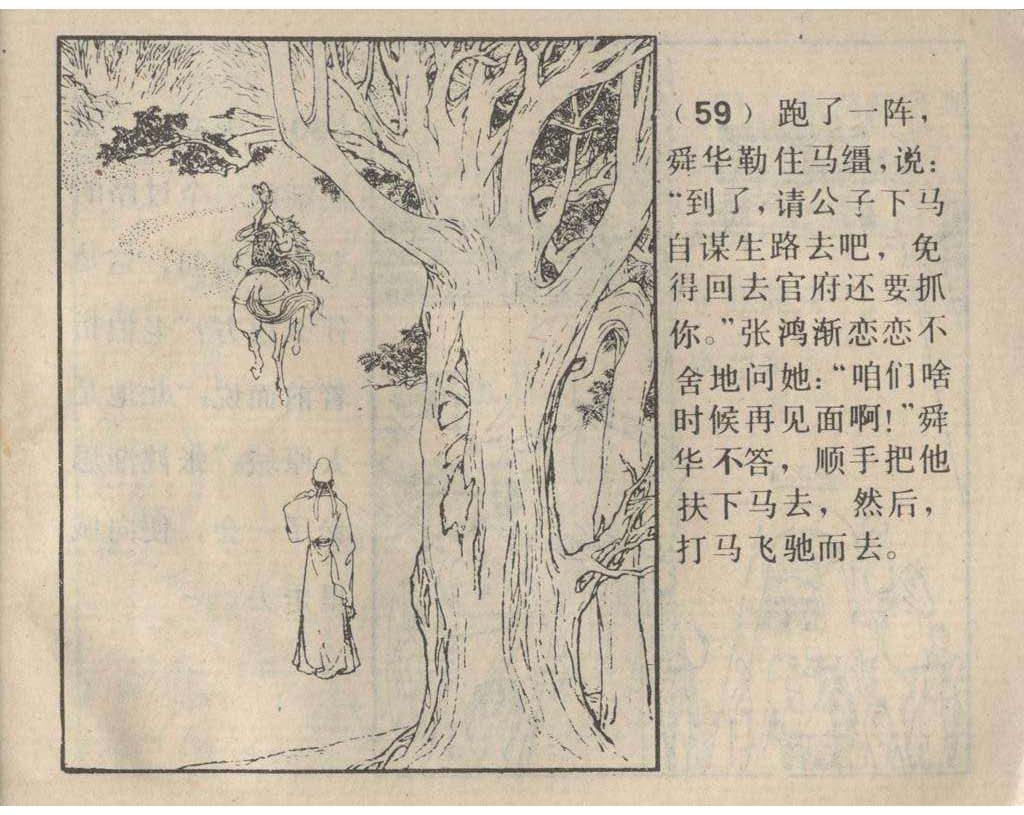 （59）跑了一阵，
舜华勒住马缰，说：
“到了，请公子下马
自谋生路去吧，免
得回去官府还要抓
你。”张鸿渐恋恋不
舍地问她：“咱们啥
时候再见面啊！”舜
华不答，顺手把他
扶下马去，然后，
打马飞驰而去。